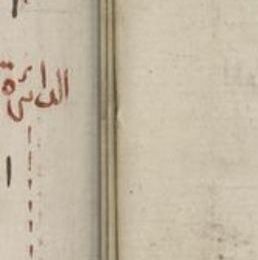 الدائرة
ا